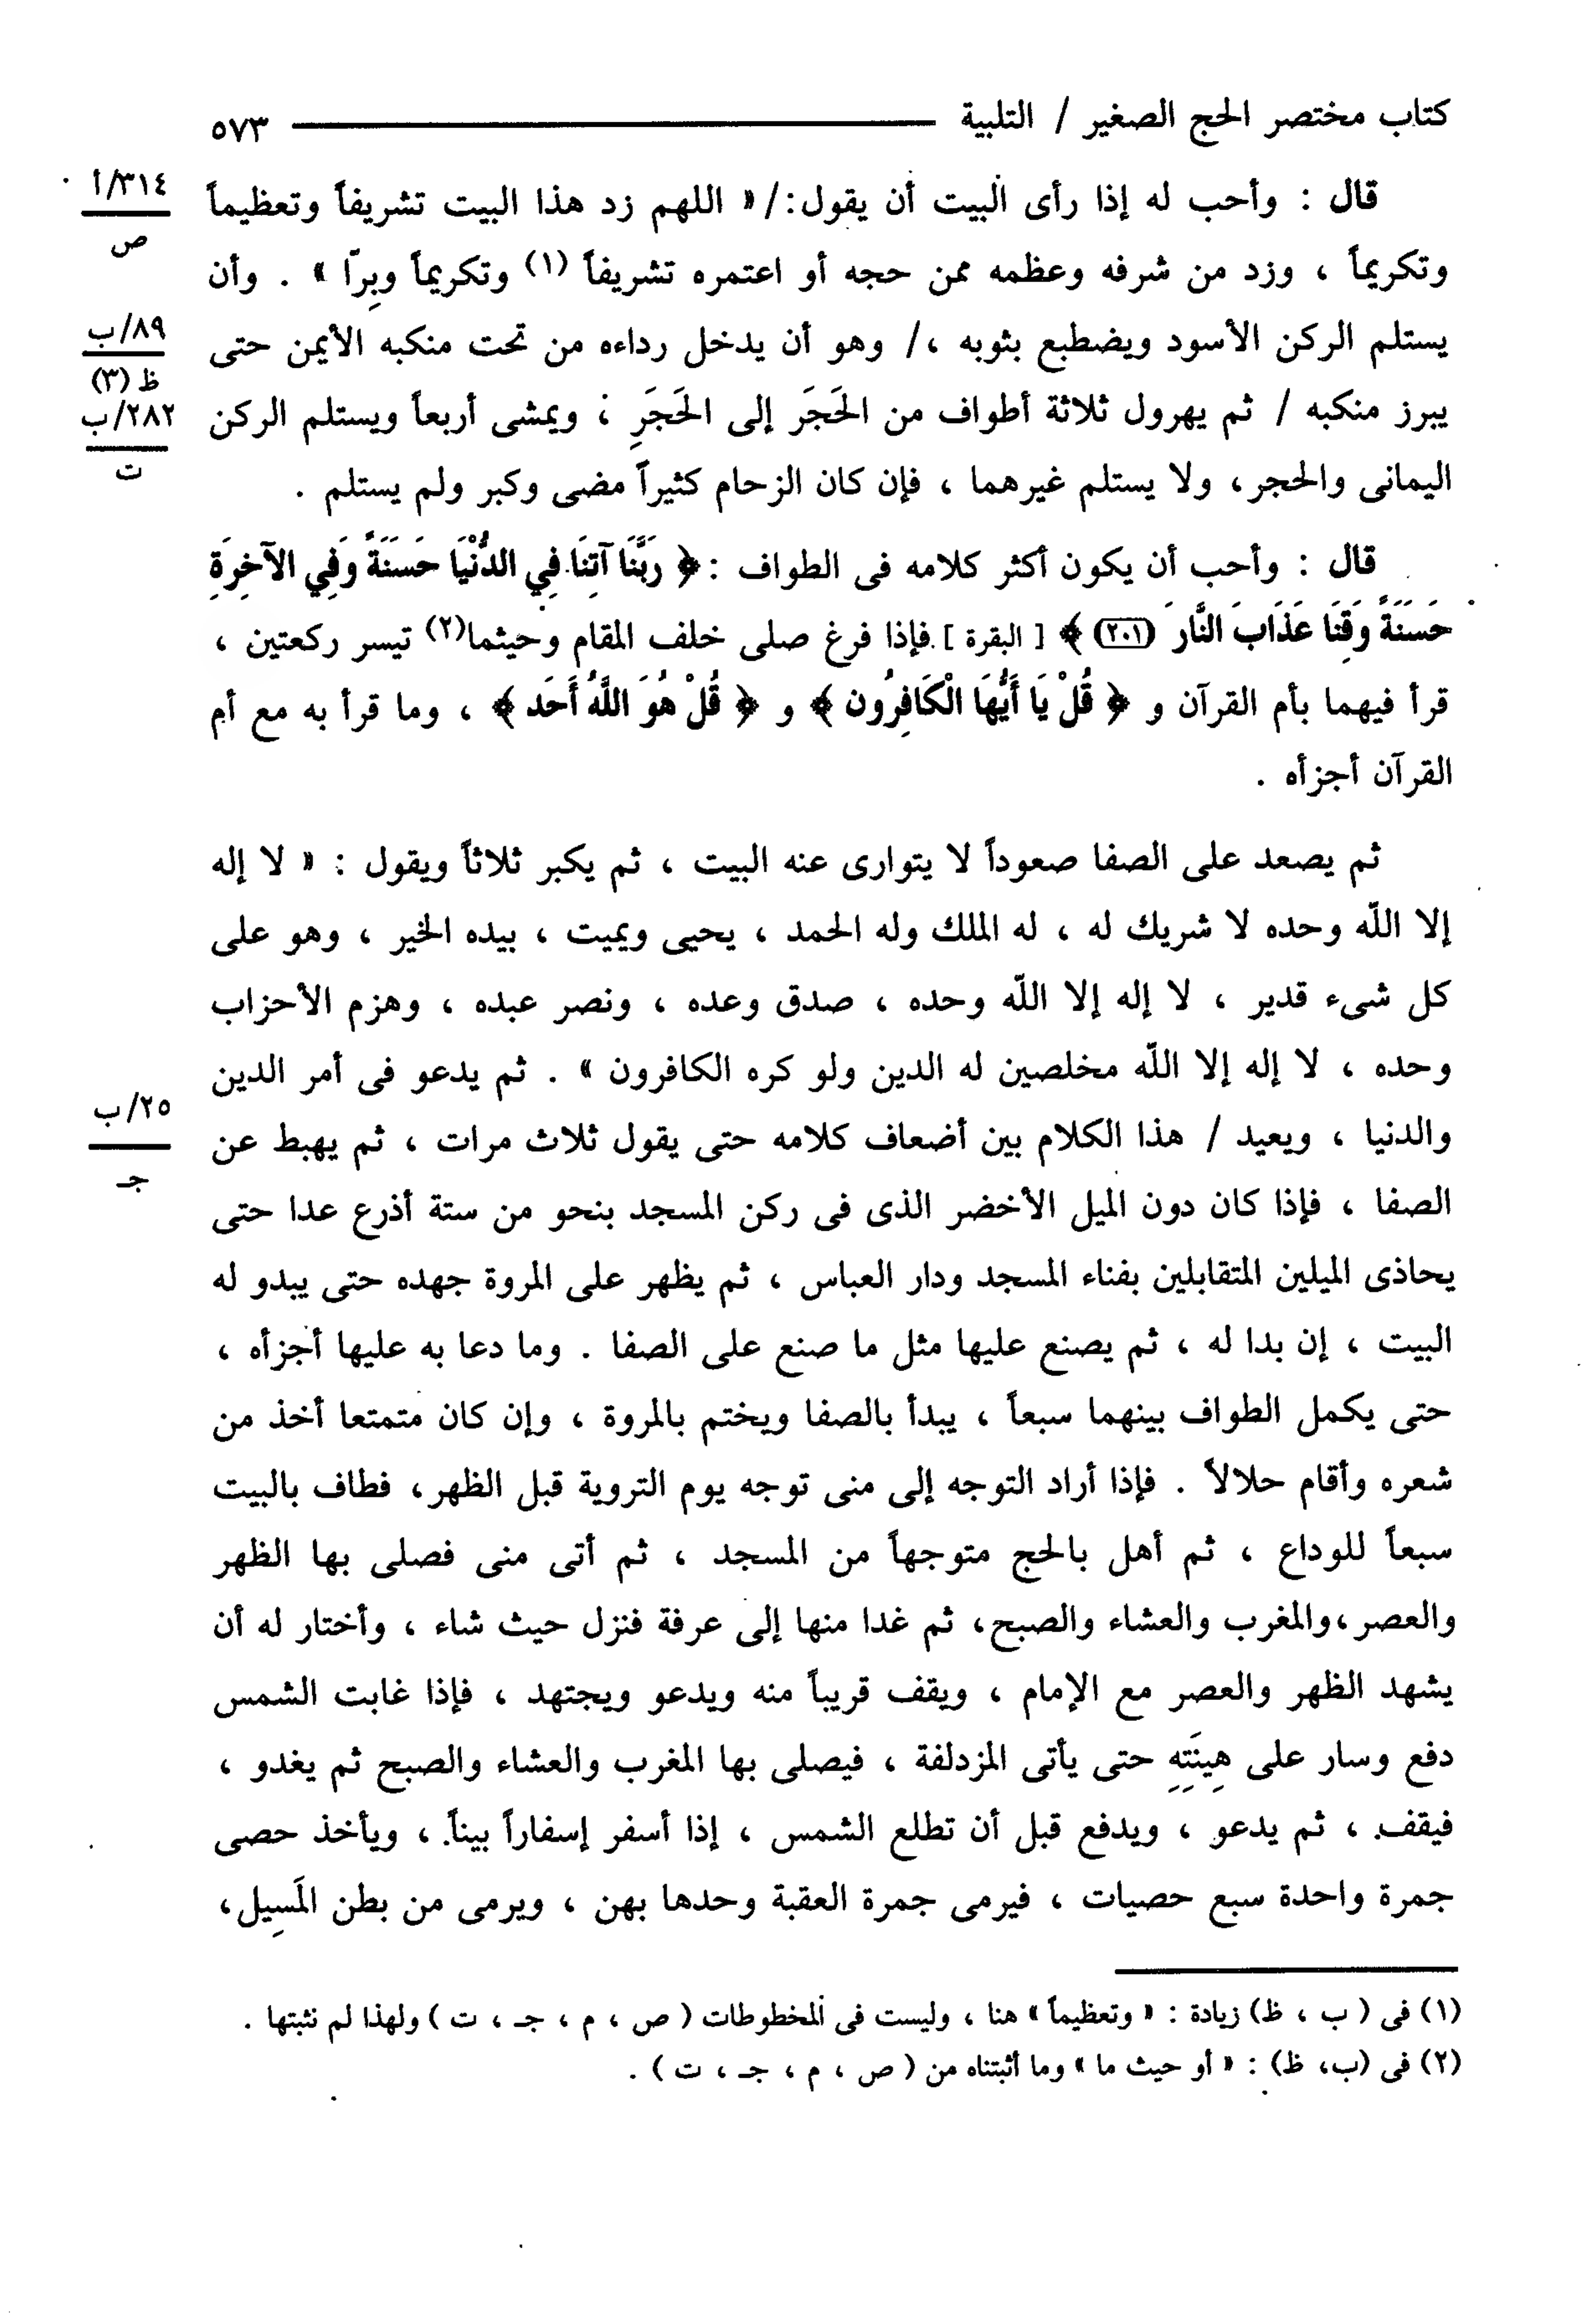 كتاب مختصر الحج الصغير / التلبية ٥٧٣
قال : وأحب له إذا رأى البيت أن يقول:/ « اللهم زد هذا البيت تشريفاً وتعظيماً
٣١٤/أ
ص
وتكريماً ، وزد من شرفه وعظمه ممن حجه أو اعتمره تشريفاً (١) وتكريماً وبِرّا » . وأن
يستلم الركن الأسود ويضطبع بثوبه ،/ وهو أن يدخل رداءه من تحت منكبه الأيمن حتى
٨٩/ب
ظ (٣)
يبرز منكبه / ثم يهرول ثلاثة أطواف من الحَجَر إلى الحَجَرِ ، ويمشى أربعاً ويستلم الركن
٢٨٢/ب
ت
اليمانى والحجر، ولا يستلم غيرهما ، فإن كان الزحام كثيراً مضى وكبر ولم يستلم .
قال : وأحب أن يكون أكثر كلامه فى الطواف : ﴿ رَبَّنَا آتِنَا فِي الدُّنْيَا حَسَنَةً وَفِي الآخِرَةِ
حَسَنَةً وَقِنَا عَذَابَ النَّارَ (٢٠١) ﴾ [ البقرة ] . فإذا فرغ صلى خلف المقام وحيثما(٢) تيسر ركعتين ،
قرأ فيهما بأم القرآن و ﴿ قُلْ يَا أَيُّهَا الْكَافِرُون ﴾ و ﴿ قُلْ هُوَ اللَّهُ أَحَد ﴾ ، وما قرأ به مع أم
القرآن أجزأه .
ثم يصعد على الصفا صعوداً لا يتوارى عنه البيت ، ثم يكبر ثلاثاً ويقول : « لا إله
إلا اللّه وحده لا شريك له ، له الملك وله الحمد ، يحيى ويميت ، بيده الخير ، وهو على
كل شىء قدير ، لا إله إلا اللّه وحده ، صدق وعده ، ونصر عبده ، وهزم الأحزاب
وحده ، لا إله إلا اللّه مخلصين له الدين ولو كره الكافرون » . ثم يدعو فى أمر الدين
والدنيا ، ويعيد / هذا الكلام بين أضعاف كلامه حتى يقول ثلاث مرات ، ثم يهبط عن
٢٥/ب
جـ
الصفا ، فإذا كان دون الميل الأخضر الذى فى ركن المسجد بنحو من ستة أذرع عدا حتى
يحاذى الميلين المتقابلين بفناء المسجد ودار العباس ، ثم يظهر على المروة جهده حتى يبدو له
البيت ، إن بدا له ، ثم يصنع عليها مثل ما صنع على الصفا . وما دعا به عليها أجزأه ،
حتى يكمل الطواف بينهما سبعاً ، يبدأ بالصفا ويختم بالمروة ، وإن كان متمتعا أخذ من
شعره وأقام حلالاً . فإذا أراد التوجه إلى منى توجه يوم التروية قبل الظهر، فطاف بالبيت
سبعاً للوداع ، ثم أهل بالحج متوجهاً من المسجد ، ثم أتى منى فصلى بها الظهر
والعصر ،والمغرب والعشاء والصبح، ثم غدا منها إلى عرفة فنزل حيث شاء ، وأختار له أن
يشهد الظهر والعصر مع الإمام ، ويقف قريباً منه ويدعو ويجتهد ، فإذا غابت الشمس
دفع وسار على هِينَتِهِ حتى يأتى المزدلفة ، فيصلى بها المغرب والعشاء والصبح ثم يغدو ،
فيقف ، ثم يدعو ، ويدفع قبل أن تطلع الشمس ، إذا أسفر إسفاراً بيناً ، ويأخذ حصى
جمرة واحدة سبع حصيات ، فيرمى جمرة العقبة وحدها بهن ، ويرمى من بطن المَسِيل،
(١) فى ( ب ، ظ) زيادة : « وتعظيماً » هنا ، وليست فى المخطوطات ( ص ، م ، جـ ، ت ) ولهذا لم نثبتها .
(٢) فى (ب، ظ) : « أو حيث ما » وما أثبتناه من ( ص ، م ، جـ ، ت ) .